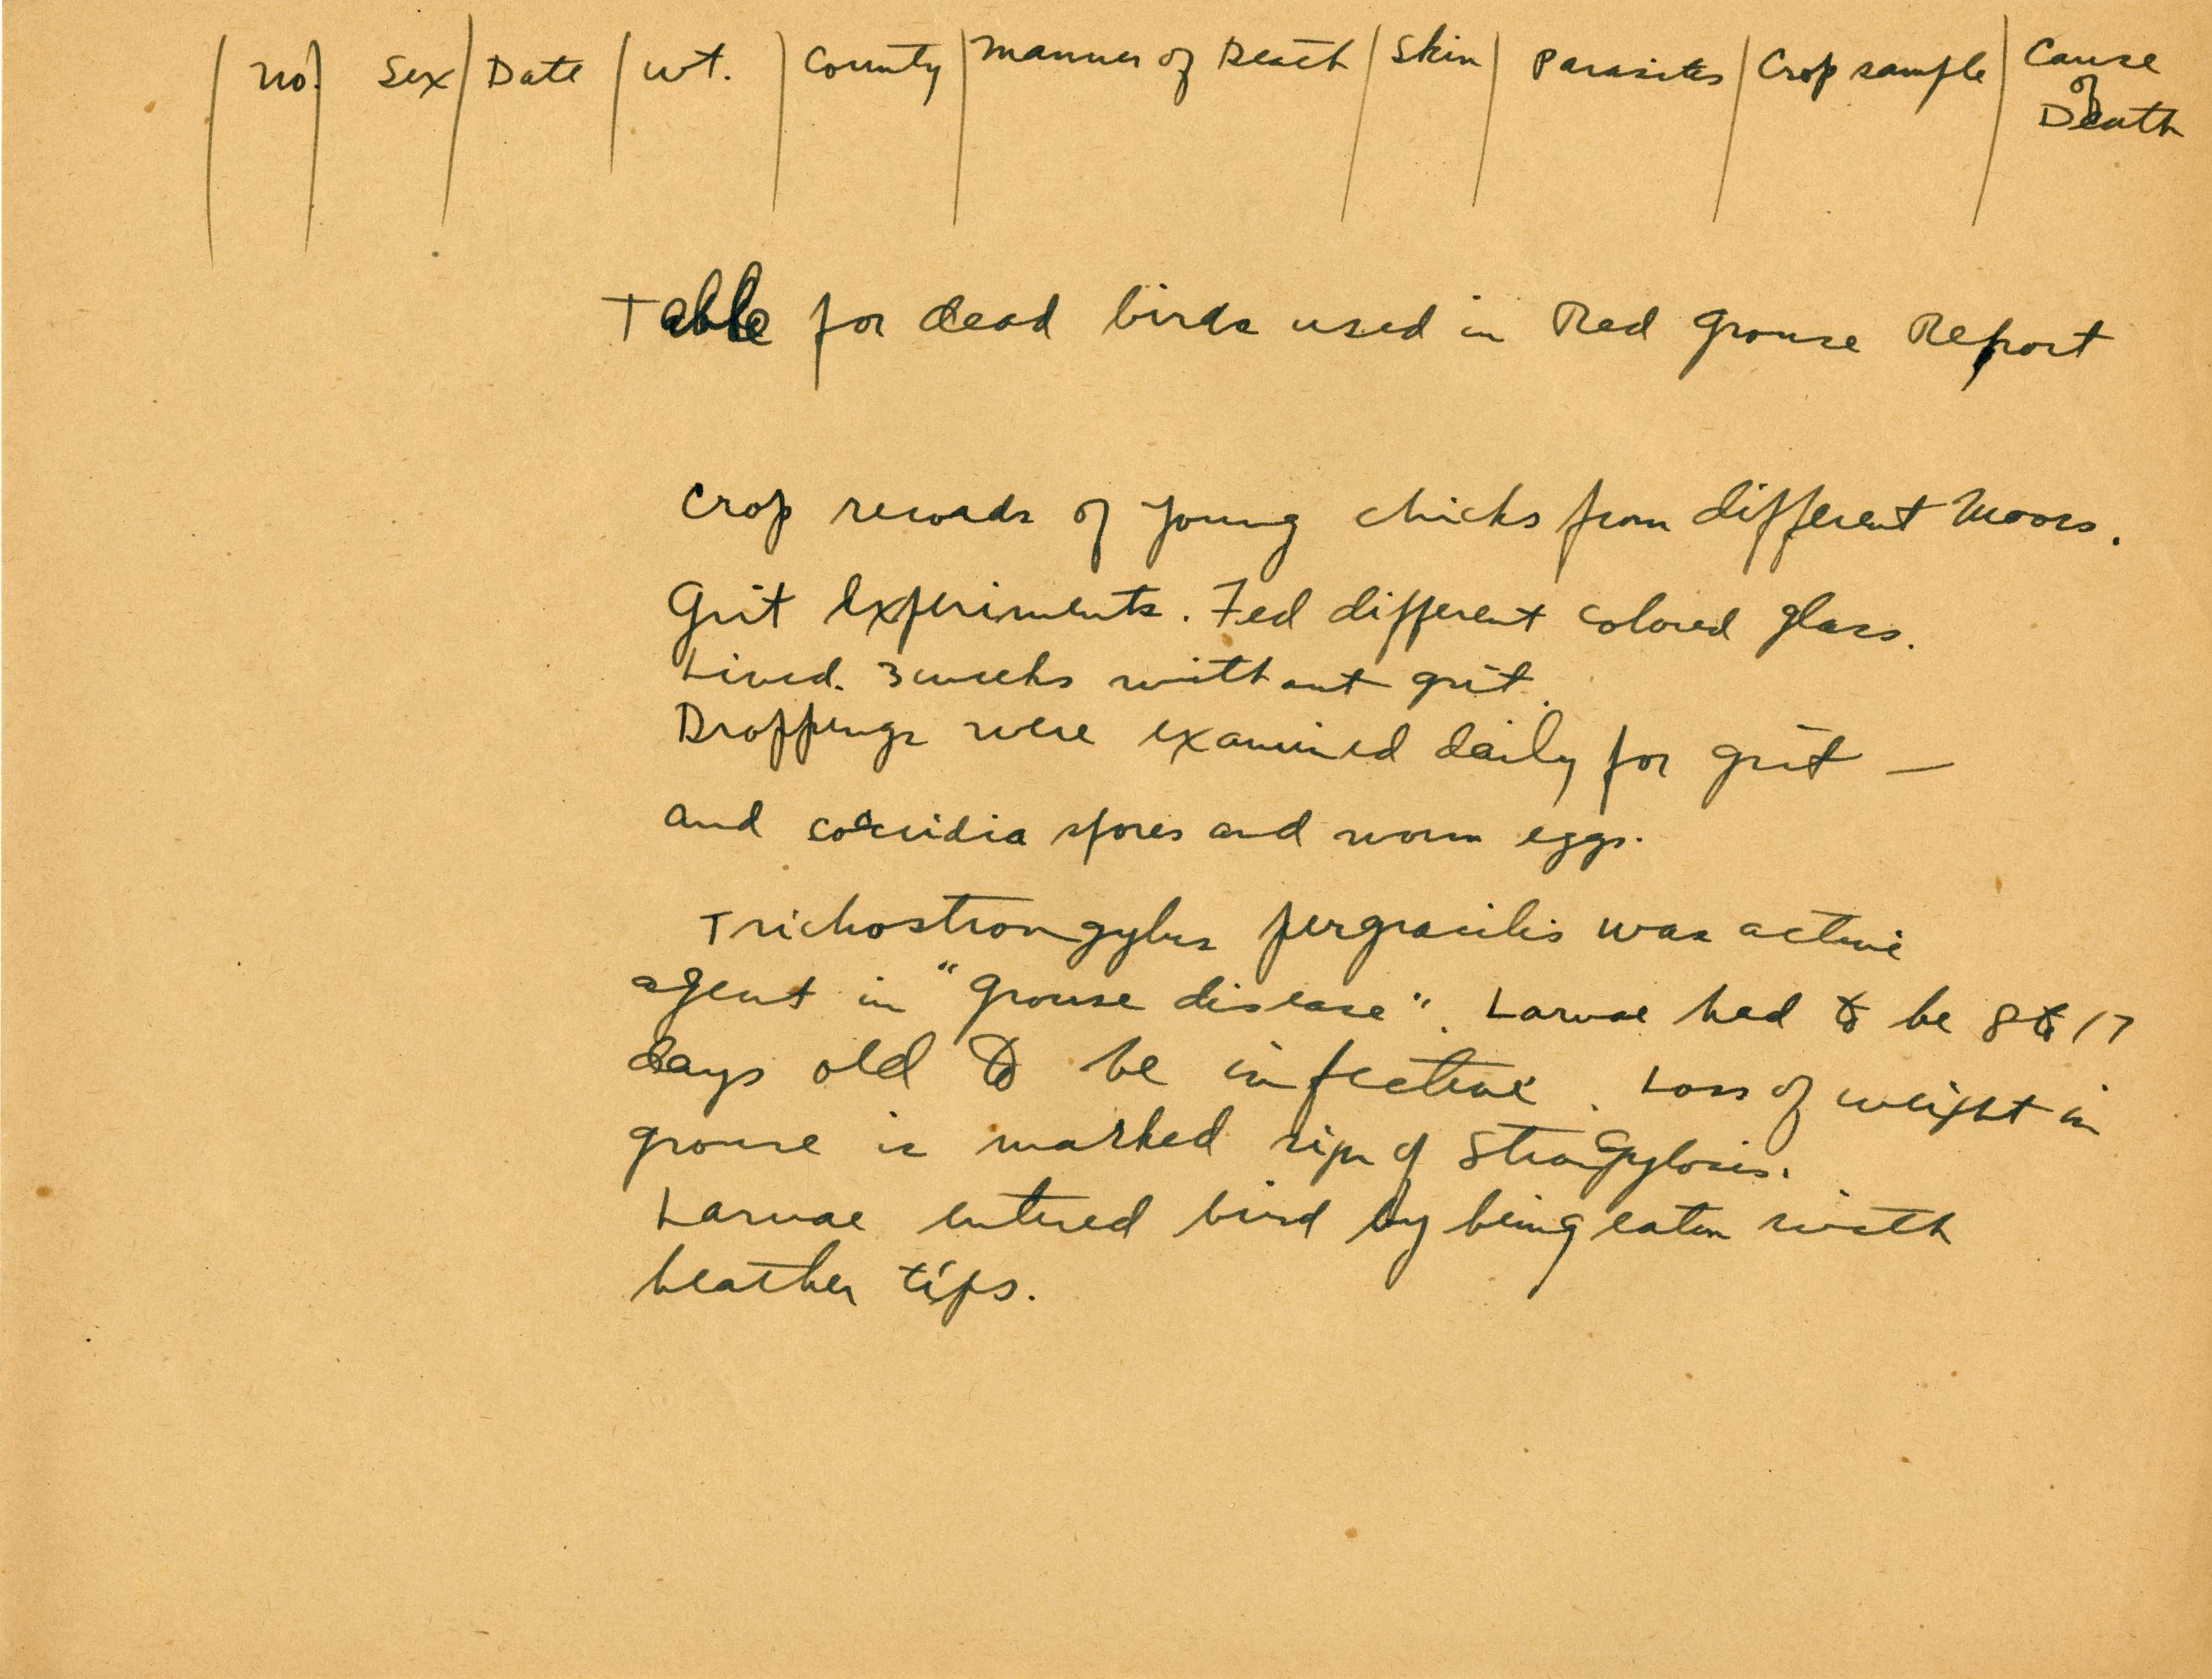 | No. | Sex | Date | Wt. | County | Manner of Death | Skin | Parasites | Crop sample | Cause of Death
Table for dead birds used in Red Grouse Report
Crop records of young chicks from different Moors.
Grit Experiments. Fed different colored glass.
Lived. 3 weeks without grit.
Droppings were examined daily for grit —
and coccidia spores and worm eggs.
Trichostrongylus pergracilis was active
agent in "Grouse disease". Larvae had to be 8 to 17
days old to be infective. Loss of weight in
grouse is marked sign of Strongylosis.
Larvae entered bird by being eaten with
heather tips.